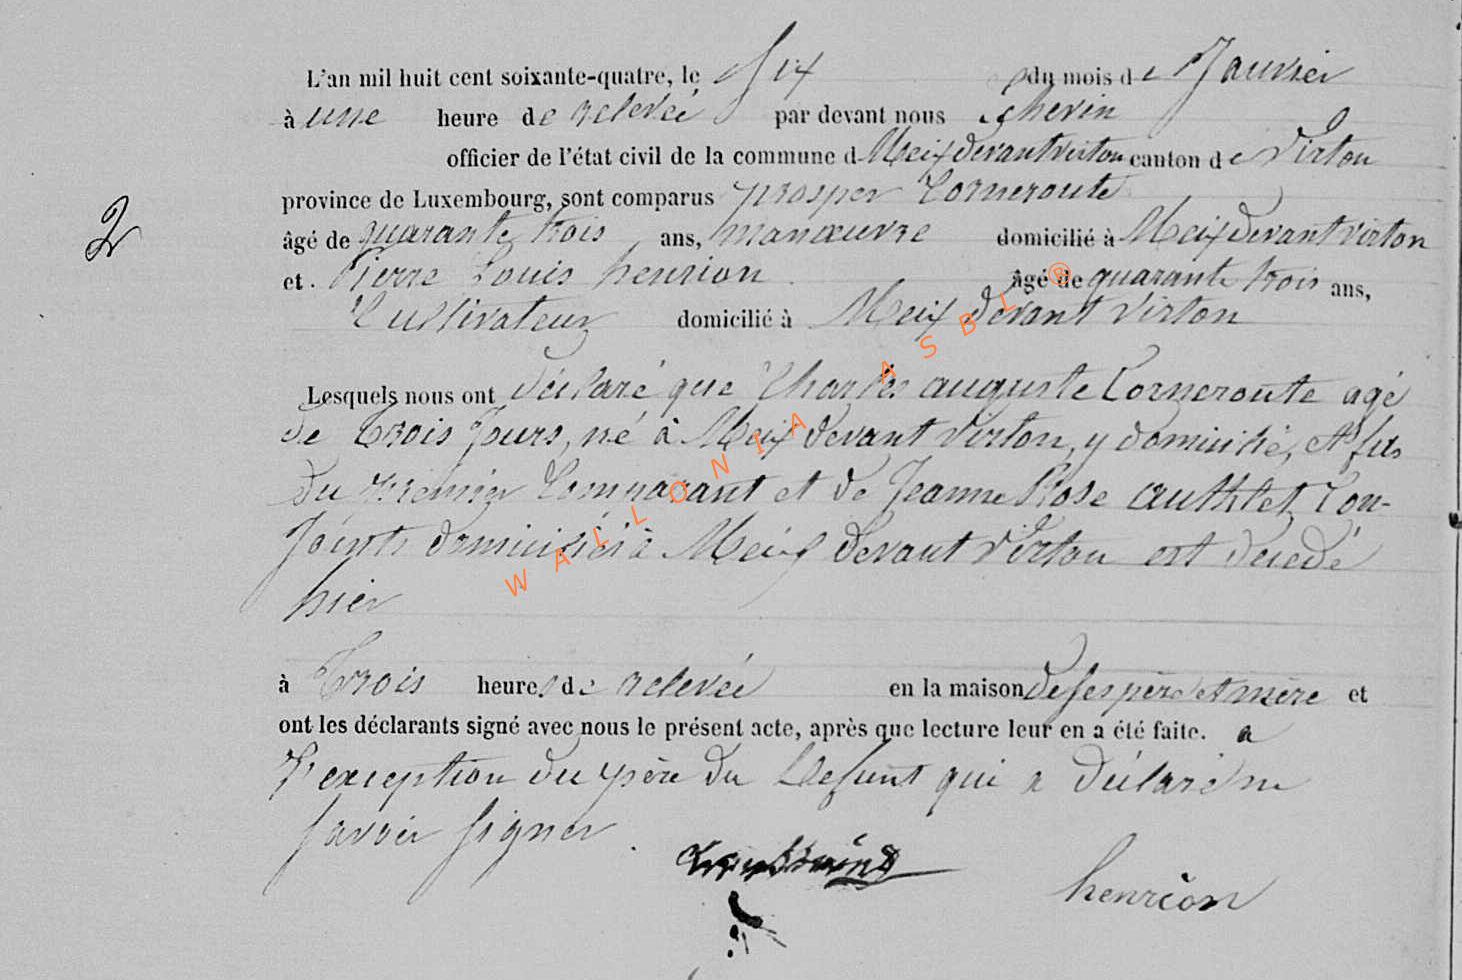 L'an mil huit cent soixante-quatre, le Six du mois de Janvier
à une heure de relevée par devant nous
officier de l'état civil de la commune d Meix devant virton canton de Virton
province de Luxembourg, sont comparus prosper Corneroute
2
âgé de quarante trois ans, manœuvre domicilié à Meix devant virton
et. Pierre Louis henrion âgé de quarante trois ans,
Cultivateur domicilié à Meix devant Virton
Lesquels nous ont déclaré que Charles auguste Corneroute agé
de trois Jours, né à Meix devant Virton, y domicilié, et fils
du premier Comparant et de Jeanne Rose authelet Con-
Joints domiciliés à Meix devant Virton est décédé
hier
à Trois heures de relevée en la maison de ses père et mère et
ont les déclarants signé avec nous le présent acte, après que lecture leur en a été faite. a
L'exception du père du Defunt qui a déclaré ne
Savoir Signer.
henrion
WALLONIA ASBL ®